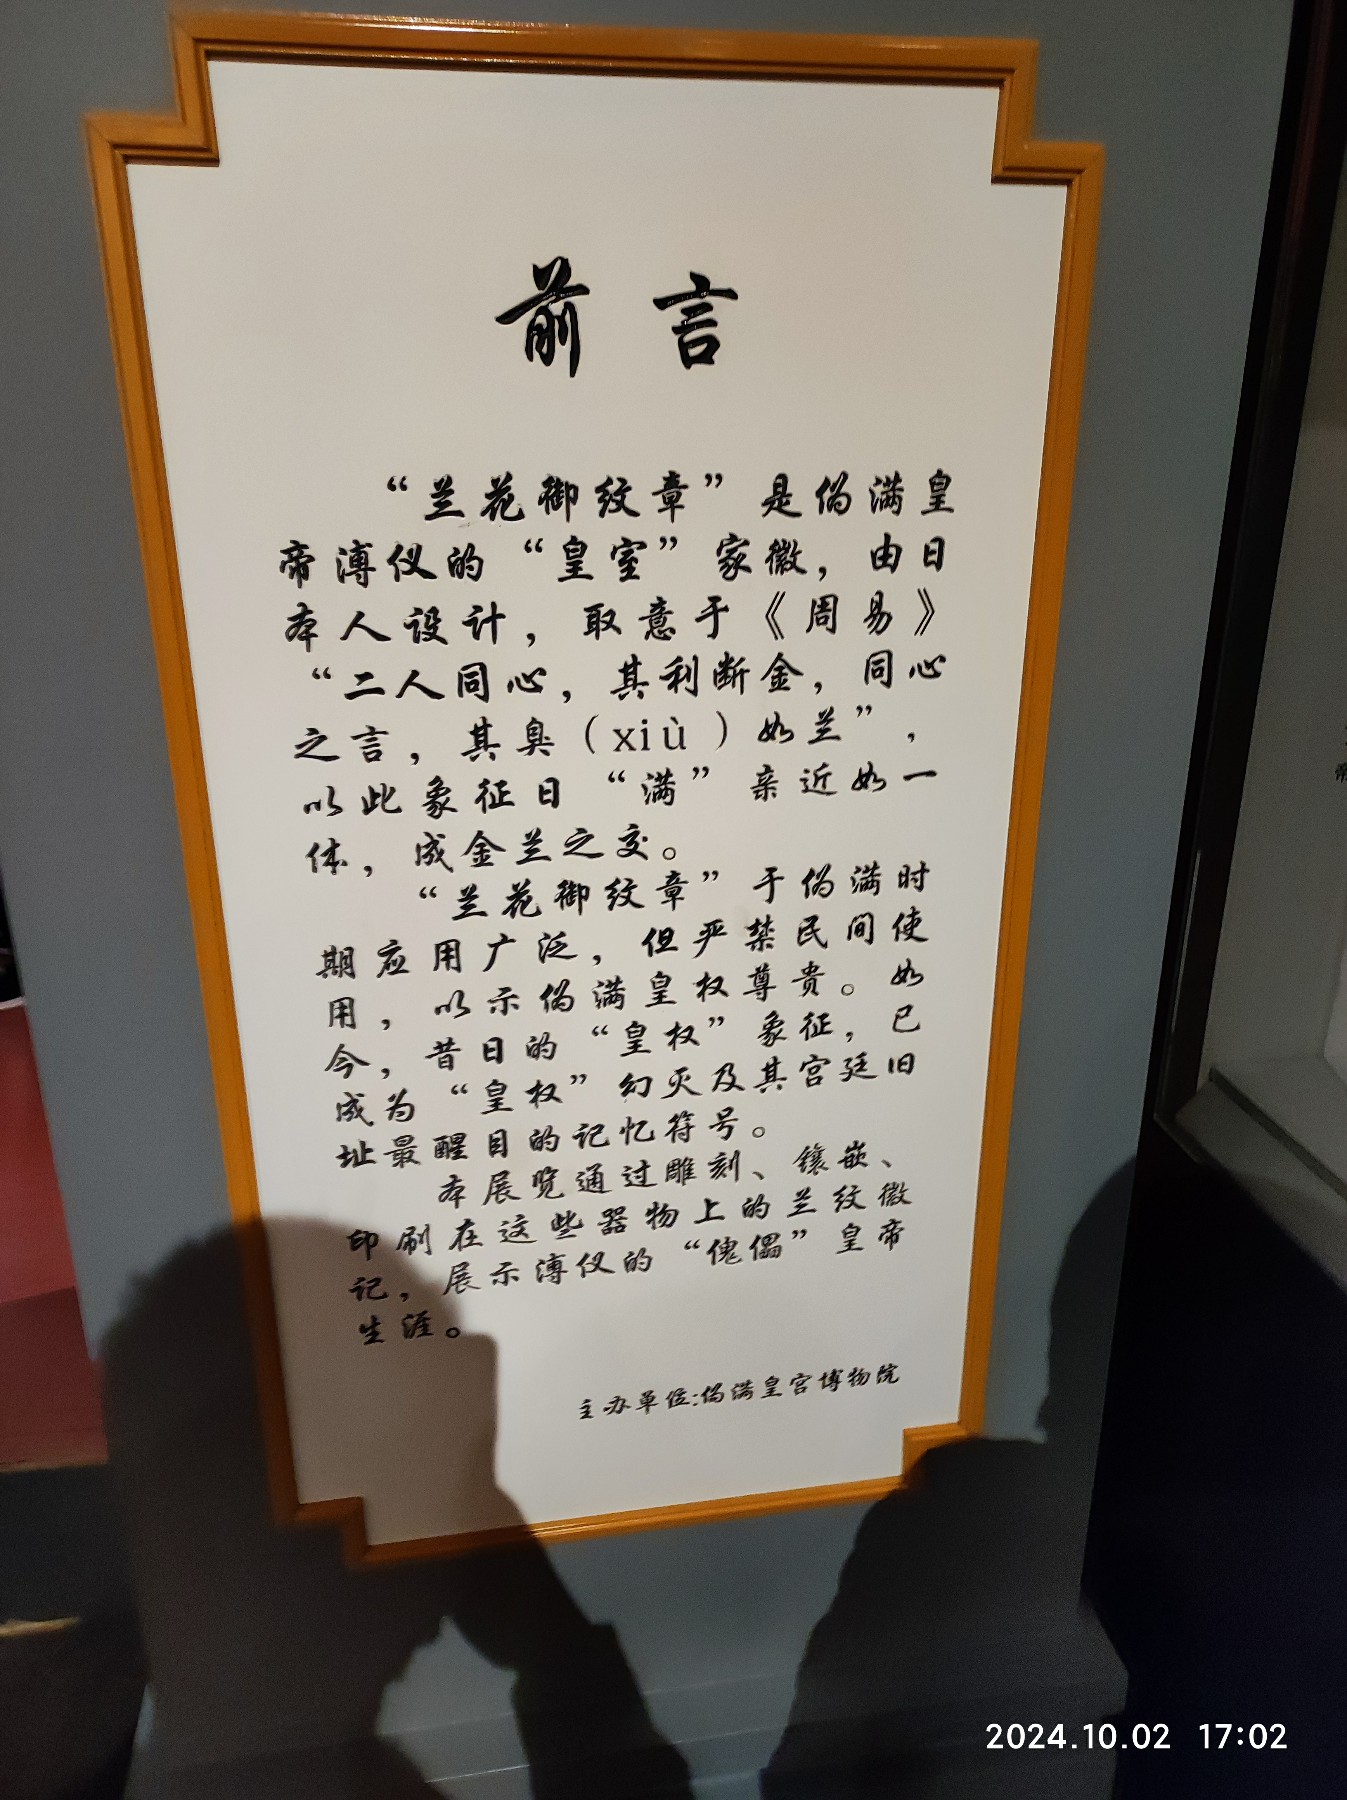 前言
“兰花御纹章”是伪满皇
帝溥仪的“皇室”家徽，由日
本人设计，取意于《周易》
“二人同心，其利断金，同心
之言，其臭（xiù）如兰”，
以此象征日“满”亲近如一
体，成金兰之交。
“兰花御纹章”于伪满时
期应用广泛，但严禁民间使
用，以示伪满皇权尊贵。如
今，昔日的“皇权”象征，已
成为“皇权”幻灭及其宫廷旧
址最醒目的记忆符号。
本展览通过雕刻、镶嵌、
印刷在这些器物上的兰纹徽
记，展示溥仪的“傀儡”皇帝
生涯。
主办单位:伪满皇宫博物院
2024.10.02 17:02